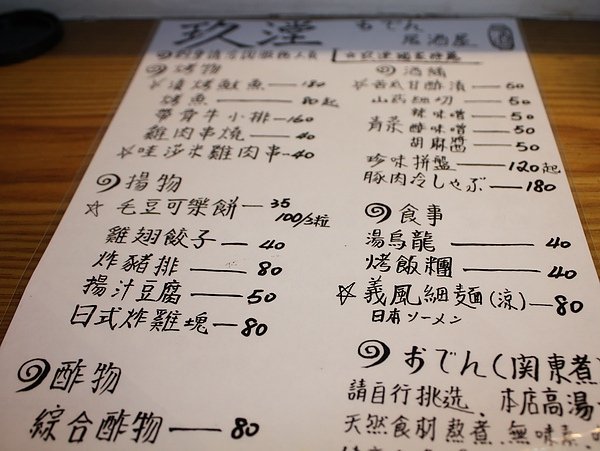 玖瀅 おでん
居酒屋
烤物
漬烤鮭魚 — 180
烤魚 — 80起
帶骨牛小排 — 160
雞肉串燒 — 40
☆哇莎米雞肉串 — 40
揚物
☆毛豆可樂餅 — 35
100/3粒
雞翅餃子 — 40
炸豬排 — 80
揚汁豆腐 — 50
日式炸雞塊 — 80
酢物
綜合酢物 — 80
酒餚
☆苦瓜甘酢漬 — 60
山药細切 — 50
青菜 辣味噌 — 50
酢味噌 — 50
胡麻醬 — 50
珍味拼盤 — 120起
豚肉冷しゃぶ — 180
食事
湯烏龍 — 40
烤飯糰 — 40
☆義風細麵(涼) — 80
日本ソーメン
おでん(関東煮
請自行挑选．本店高湯
天然食材熬煮．無味素．